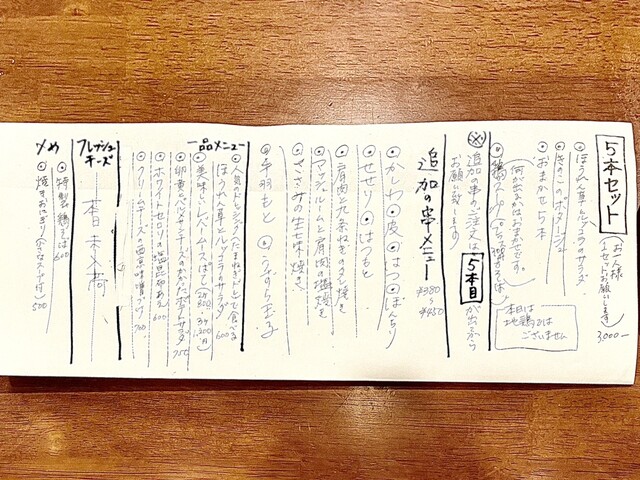 5本セット
(お一人様
1セットお願いします)
3,000-
・ほうれん草とルッコラのサラダ
・きのこのポタージュ
・おまかせ5本
何が出るかはおまかせです。
本日は
地鶏では
ございません
※追加の串のご注文は 5本目 が出てから
お願い致します
追加の串メニュー
¥380〜
¥450
・かしわ ・皮 ・はつ ・ぼんちり
・せせり ・はつもと
・肩肉と九条ねぎのタレ焼き
・マッシュルームと肩肉の塩焼き
・ささみの生七味焼き
・手羽もと ・うずらたまご
一品メニュー
・人気ドレッシング(たまねぎドレ)で食べる
ほうれん草とルッコラのサラダ 600
・美味しいレバームースはし
・卵黄のパルメザンチーズのかかったポテトサラダ 750
・ホワイトセロリの塩昆布あえ 600
・クリームチーズの西京味噌づけ 700
フレッシュ
チーズ
本日未入荷
〆め
・特製鶏そば 600
・焼きおにぎり(小さなスープ付) 500